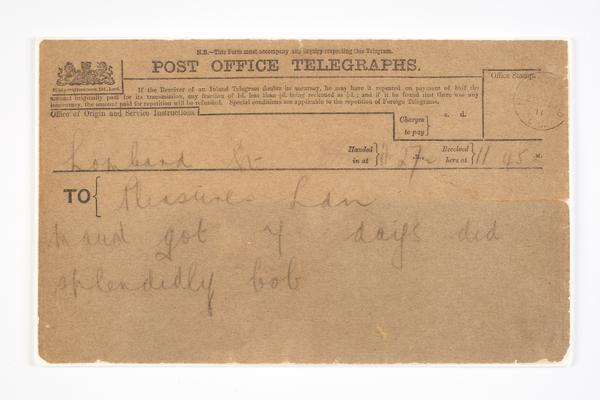 N.B.—This Form must accompany any inquiry respecting this Telegram.
POST OFFICE TELEGRAPHS.
If the Receiver of an Inland Telegram doubts its accuracy, he may have it repeated on payment of half the
amount originally paid for its transmission, any fraction of 1d. less than ½d. being reckoned as ½d.; and if it be found that there was any
inaccuracy, the amount paid for repetition will be refunded. Special conditions are applicable to the repetition of Foreign Telegrams.
Office Stamp.
Office of Origin and Service Instructions.
Charges to pay
s. d.
Lombard St
Handed in at 11 27
Received here at 11 45 M.
TO Pleasures Ldn
Maud got 7 days did
splendidly bob